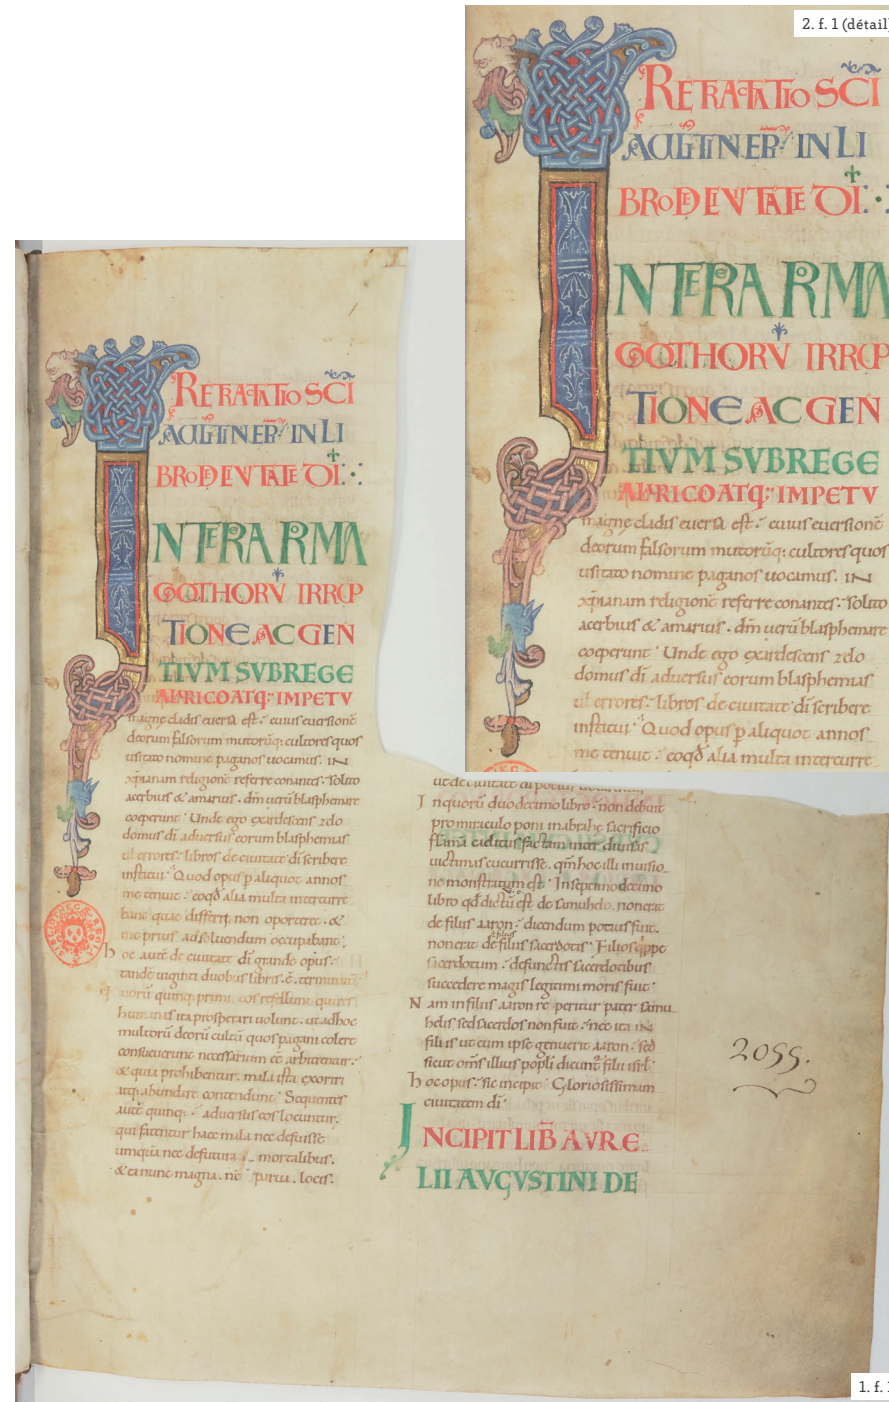 2. f. 1 (détail)
RETRATATIO SCI
AUGUSTINI EPI IN LI
BRO DE CIVTATE DI
NTERA RMA
GOTHORV IRRUP
TIONE AC GEN
TIVM SVBREGE
ALARICO ATQ: IMPETV
magne cladis euersa est. cuius euersionē
deorum falsorum multorūq: cultores quos
usitato nomine paganos uocamus. IN
xp̄ianam religionē referre conantes. Solito
acerbius & amarius. dm̄ uerū blasphemare
coeperunt. Unde ego exardescens zelo
domus dī aduersus eorum blasphemias
uel errores. libros de ciuitate dī scribere
institui. Quod opus p aliquot annos
me tenuit. eo qđ alia multa intercurre
RETRATATIO SCI
AUGUSTINI EPI IN LI
BRO DE CIVTATE DI
NTERA RMA
GOTHORV IRRUP
TIONE AC GEN
TIVM SVBREGE
ALARICO ATQ: IMPETV
magne cladis euersa est. cuius euersionē
deorum falsorum multorūq: cultores quos
usitato nomine paganos uocamus. IN
xp̄ianam religionē referre conantes. Solito
acerbius & amarius. dm̄ uerū blasphemare
coeperunt. Unde ego exardescens zelo
domus dī aduersus eorum blasphemias
uel errores. libros de ciuitate dī scribere
institui. Quod opus p aliquot annos
me tenuit. eo qđ alia multa intercurre
bant quae differri non oporteret. &
me prius ad soluendum occupabant.
hoc autē de ciuitate dī grande opus.
tandē uiginti duobus libris. ē. terminatū
quorū quinq: primi eos refellunt qui res
humanas ita prosperari uolunt. ut ad hoc
multorū deorū cultū quos pagani colere
consueuerunt necessarium eē arbitrentur.
& quia prohibentur. mala ista exoriri
atq: abundare contendunt. Sequentes
autē quinq: aduersus eos locuntur.
qui fatentur haec mala nec defuisse
umquā nec defutura mortalibus.
& ea nunc magna. nc̄ parua. locis.
ut de ciuitate di
Inquorū duodecimo libro. non debuit
pro miraculo poni in abrahe sacrificio
flāmā caelitus factam inter diuisas
uictimas cucurrisse. qm̄ hoc illi in uisio
ne monstratum est. In septimo decimo
libro qđ dictū est de samuhele. non erat
de filiis aaron. dicendum potius fuit.
non erat de filiis sacerdotis. Filios qippe
sacerdotum. defunctis sacerdotibus
succedere magis legitimi moris fuit.
Nam in filiis aaron reperitur pater samu
helis sed sacerdos non fuit. nec ita in
filiis ut eum ipse genuerit aaron. sed
sicut om̄s illius popli dicunt filii isrl.
hoc opus. sic incipit. Gloriosissimam
ciuitatem dī.
INCIPIT LIB AVRE
LII AVGVSTINI DE
2055.
BIBLIOTHECAE REGIAE
1. f. 1